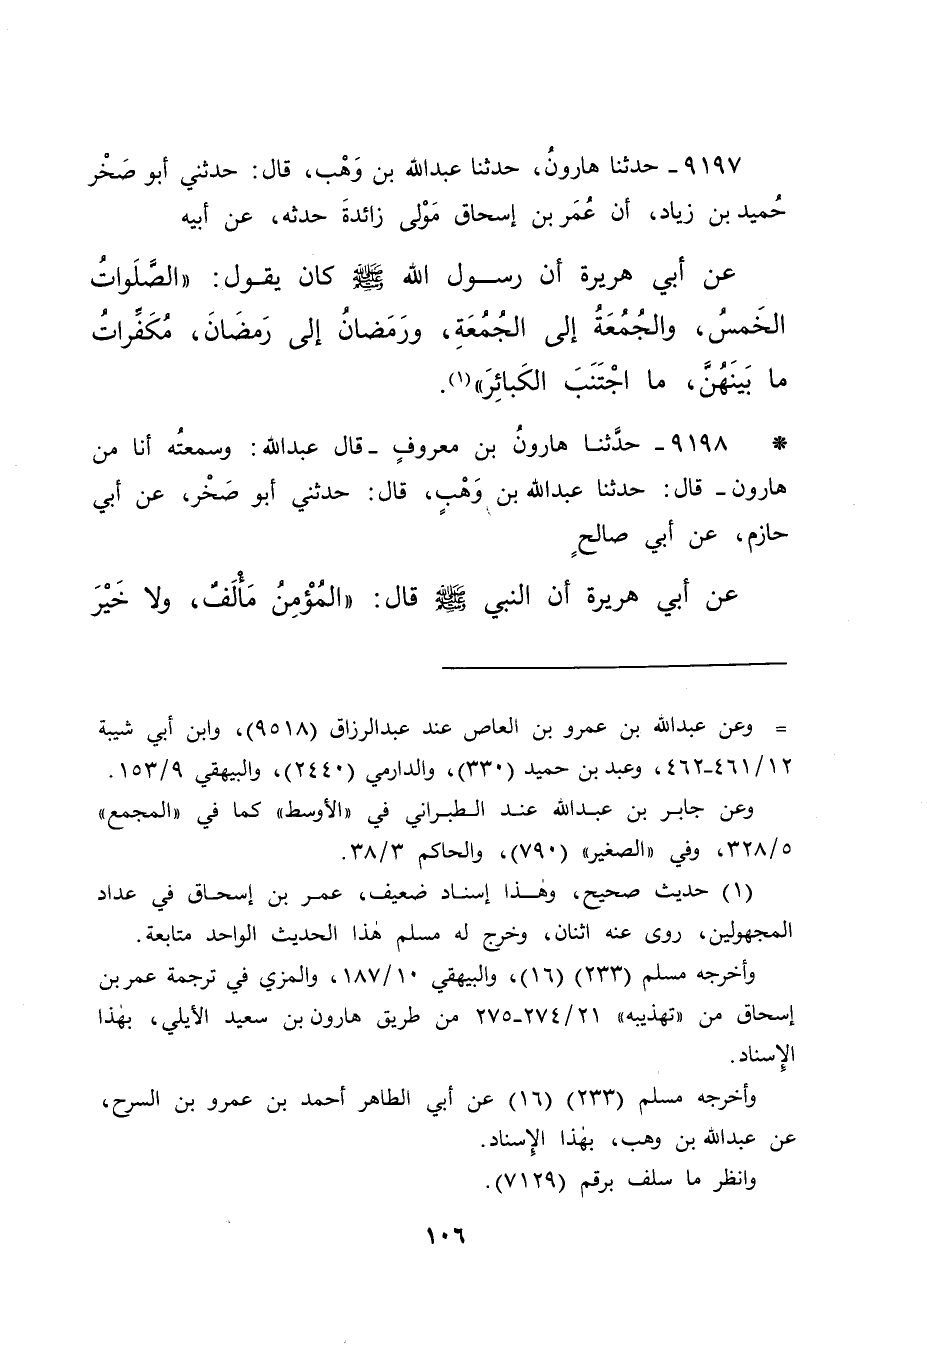 ٩١٩٧ـ حدثنا هارونُ، حدثنا عبدالله بن وَهْب، قال: حدثني أبو صَخْر
حُميد بن زياد، أن عُمَر بن إسحاق مَوْلى زائدةَ حدثه، عن أبيه
عن أبي هريرة أن رسول الله ﷺ كان يقول: «الصَّلَواتُ
الخَمسُ، والجُمُعَةُ إلى الجُمُعَةِ، ورَمَضانُ إلى رَمضَانَ، مُكَفِّراتُ
ما بَينَهُنَّ، ما اجْتَنَبَ الكَبائِرَ»(١).
* ٩١٩٨ـ حدَّثنا هارونُ بن معروفٍ ـ قال عبدالله: وسمعتُه أنا من
هارون ـ قال: حدثنا عبدالله بن وَهْبٍ، قال: حدثني أبو صَخْر، عن أبي
حازم، عن أبي صالحٍ
عن أبي هريرة أن النبي ﷺ قال: «المُؤْمِنُ مَأْلَفٌ، ولا خَيْرَ
= وعن عبدالله بن عمرو بن العاص عند عبدالرزاق (٩٥١٨)، وابن أبي شيبة
١٢/٤٦١ـ٤٦٢، وعبد بن حميد (٣٣٠)، والدارمي (٢٤٤٠)، والبيهقي ٩/١٥٣.
وعن جابر بن عبدالله عند الطبراني في «الأوسط» كما في «المجمع»
٥/٣٢٨، وفي «الصغير» (٧٩٠)، والحاكم ٣/٣٨.
(١) حديث صحيح، وهٰذا إسناد ضعيف، عمر بن إسحاق في عداد
المجهولين، روى عنه اثنان، وخرج له مسلم هٰذا الحديث الواحد متابعة.
وأخرجه مسلم (٢٣٣) (١٦)، والبيهقي ١٠/١٨٧، والمزي في ترجمة عمر بن
إسحاق من «تهذيبه» ٢١/٢٧٤ـ٢٧٥ من طريق هارون بن سعيد الأيلي، بهٰذا
الإسناد.
وأخرجه مسلم (٢٣٣) (١٦) عن أبي الطاهر أحمد بن عمرو بن السرح،
عن عبدالله بن وهب، بهٰذا الإسناد.
وانظر ما سلف برقم (٧١٢٩).
١٠٦